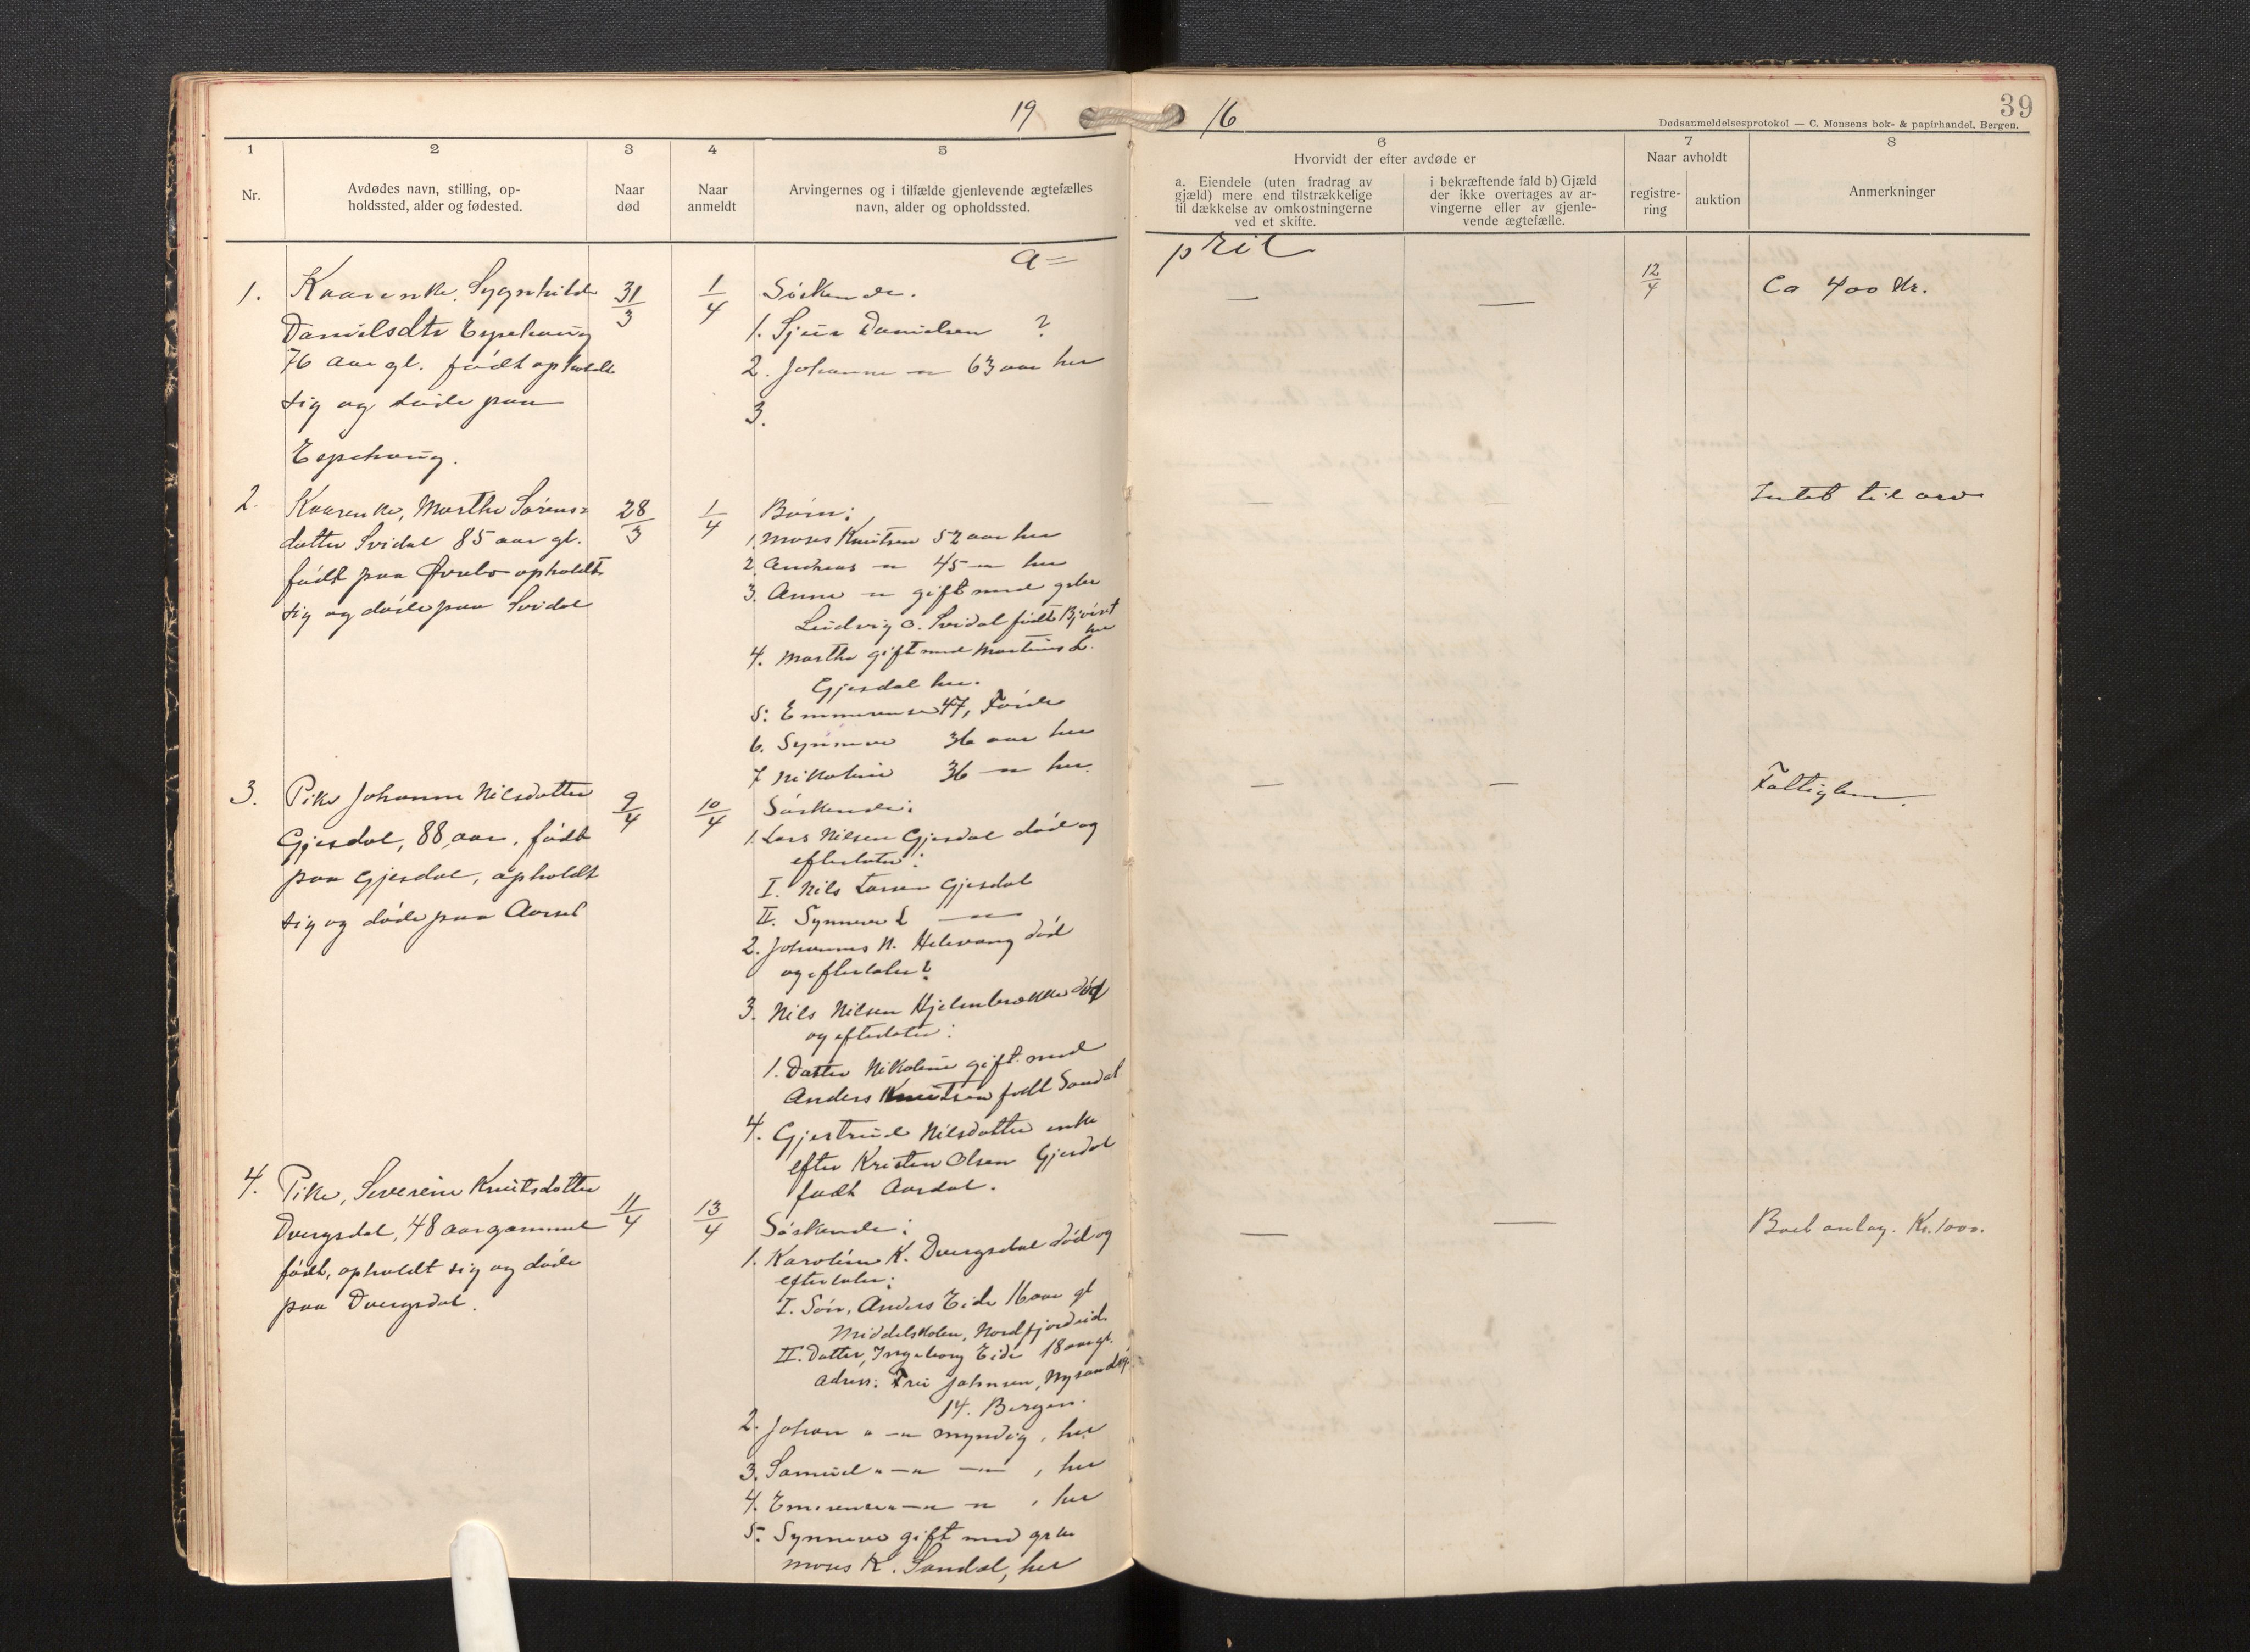 19
16
39
Dødsanmeldelsesprotokol — C. Monsens bok- & papirhandel, Bergen.
1
2
3
4
5
6
7
8
Nr.
Avdødes navn, stilling, op-
holdssted, alder og fødested.
Naar
død
Naar
anmeldt
Arvingernes og i tilfælde gjenlevende ægtefælles
navn, alder og opholdssted.
Hvorvidt der efter avdøde er
a. Eiendele (uten fradrag av
gjæld) mere end tilstrækkelige
til dækkelse av omkostningerne
ved et skifte.
i bekræftende fald b) Gjæld
der ikke overtages av ar-
vingerne eller av gjenle-
vende ægtefælle.
Naar avholdt
registre-
ring
auktion
Anmerkninger
A=
pril
1.
Kaarenke, Sygnhild
Danielsdtr Espehaug
76 aar gl. født opholdt
sig og døde paa
Espehaug.
31/3
1/4
Søskende.
1. Sjur Danielsen ?
2. Johanne —"— 63 aar her
3.
12/4
Ca 400 Kr.
2.
Kaarenke, Marthe Sørens=
datter Svidal 85 aar gl.
født paa Øvrebø opholdt
sig og døde paa Svidal
28/3
1/4
Børn:
1. Moses Knutsen 52 aar her
2. Andreas —"— 45 —"— her
3. Anne —"— gift med gbr
Ludvig O. Svidal født
her
4. Marthe gift med Martinus L.
Gjesdal her.
5. Emmerense 47, Førde
6. Synneve 36 aar her
7. Nikoline 36 —"— her.
Intet til arv
3.
Pike Johanne Nilsdatter
Gjesdal, 88 aar, født
paa Gjesdal, opholdt
sig og døde paa
9/4
10/4
Søskende:
1. Lars Nilsen Gjesdal død og
efterlater:
I. Nils Larsen Gjesdal
II. Synneve L —"—
2. Johannes N. Helevang død
og efterlater?
3. Nils Nilsen Hjelmbrekke død
og efterlater:
1. Datter Nikoline gift med
Anders Knutsen født Sandal
4. Gjertrud Nilsdatter enke
efter Kristen Olsen Gjesdal
født Aardal.
Fattiglem.
4.
Pike, Severine Knutsdatter
Dvergsdal, 48 aar gammel
født, opholdt sig og døde
paa Dvergsdal.
11/4
13/4
Søskende:
1. Karoline K. Dvergsdal død og
efterlater:
I. Søn, Anders Eide 16 aar gl
Middelskolen, Nordfjordeid.
II. Datter, Ingeborg Eide 18 aar gl.
adress: Fru Johnsen,
14. Bergen.
2. Johan " —"— myndig, her
3. Samuel " —"— —"—, her
4. Emerense " —"— —"—, her
5. Synneve gift med gbr
Moses K. Sandal, her
Boet antag. Kr. 1000.